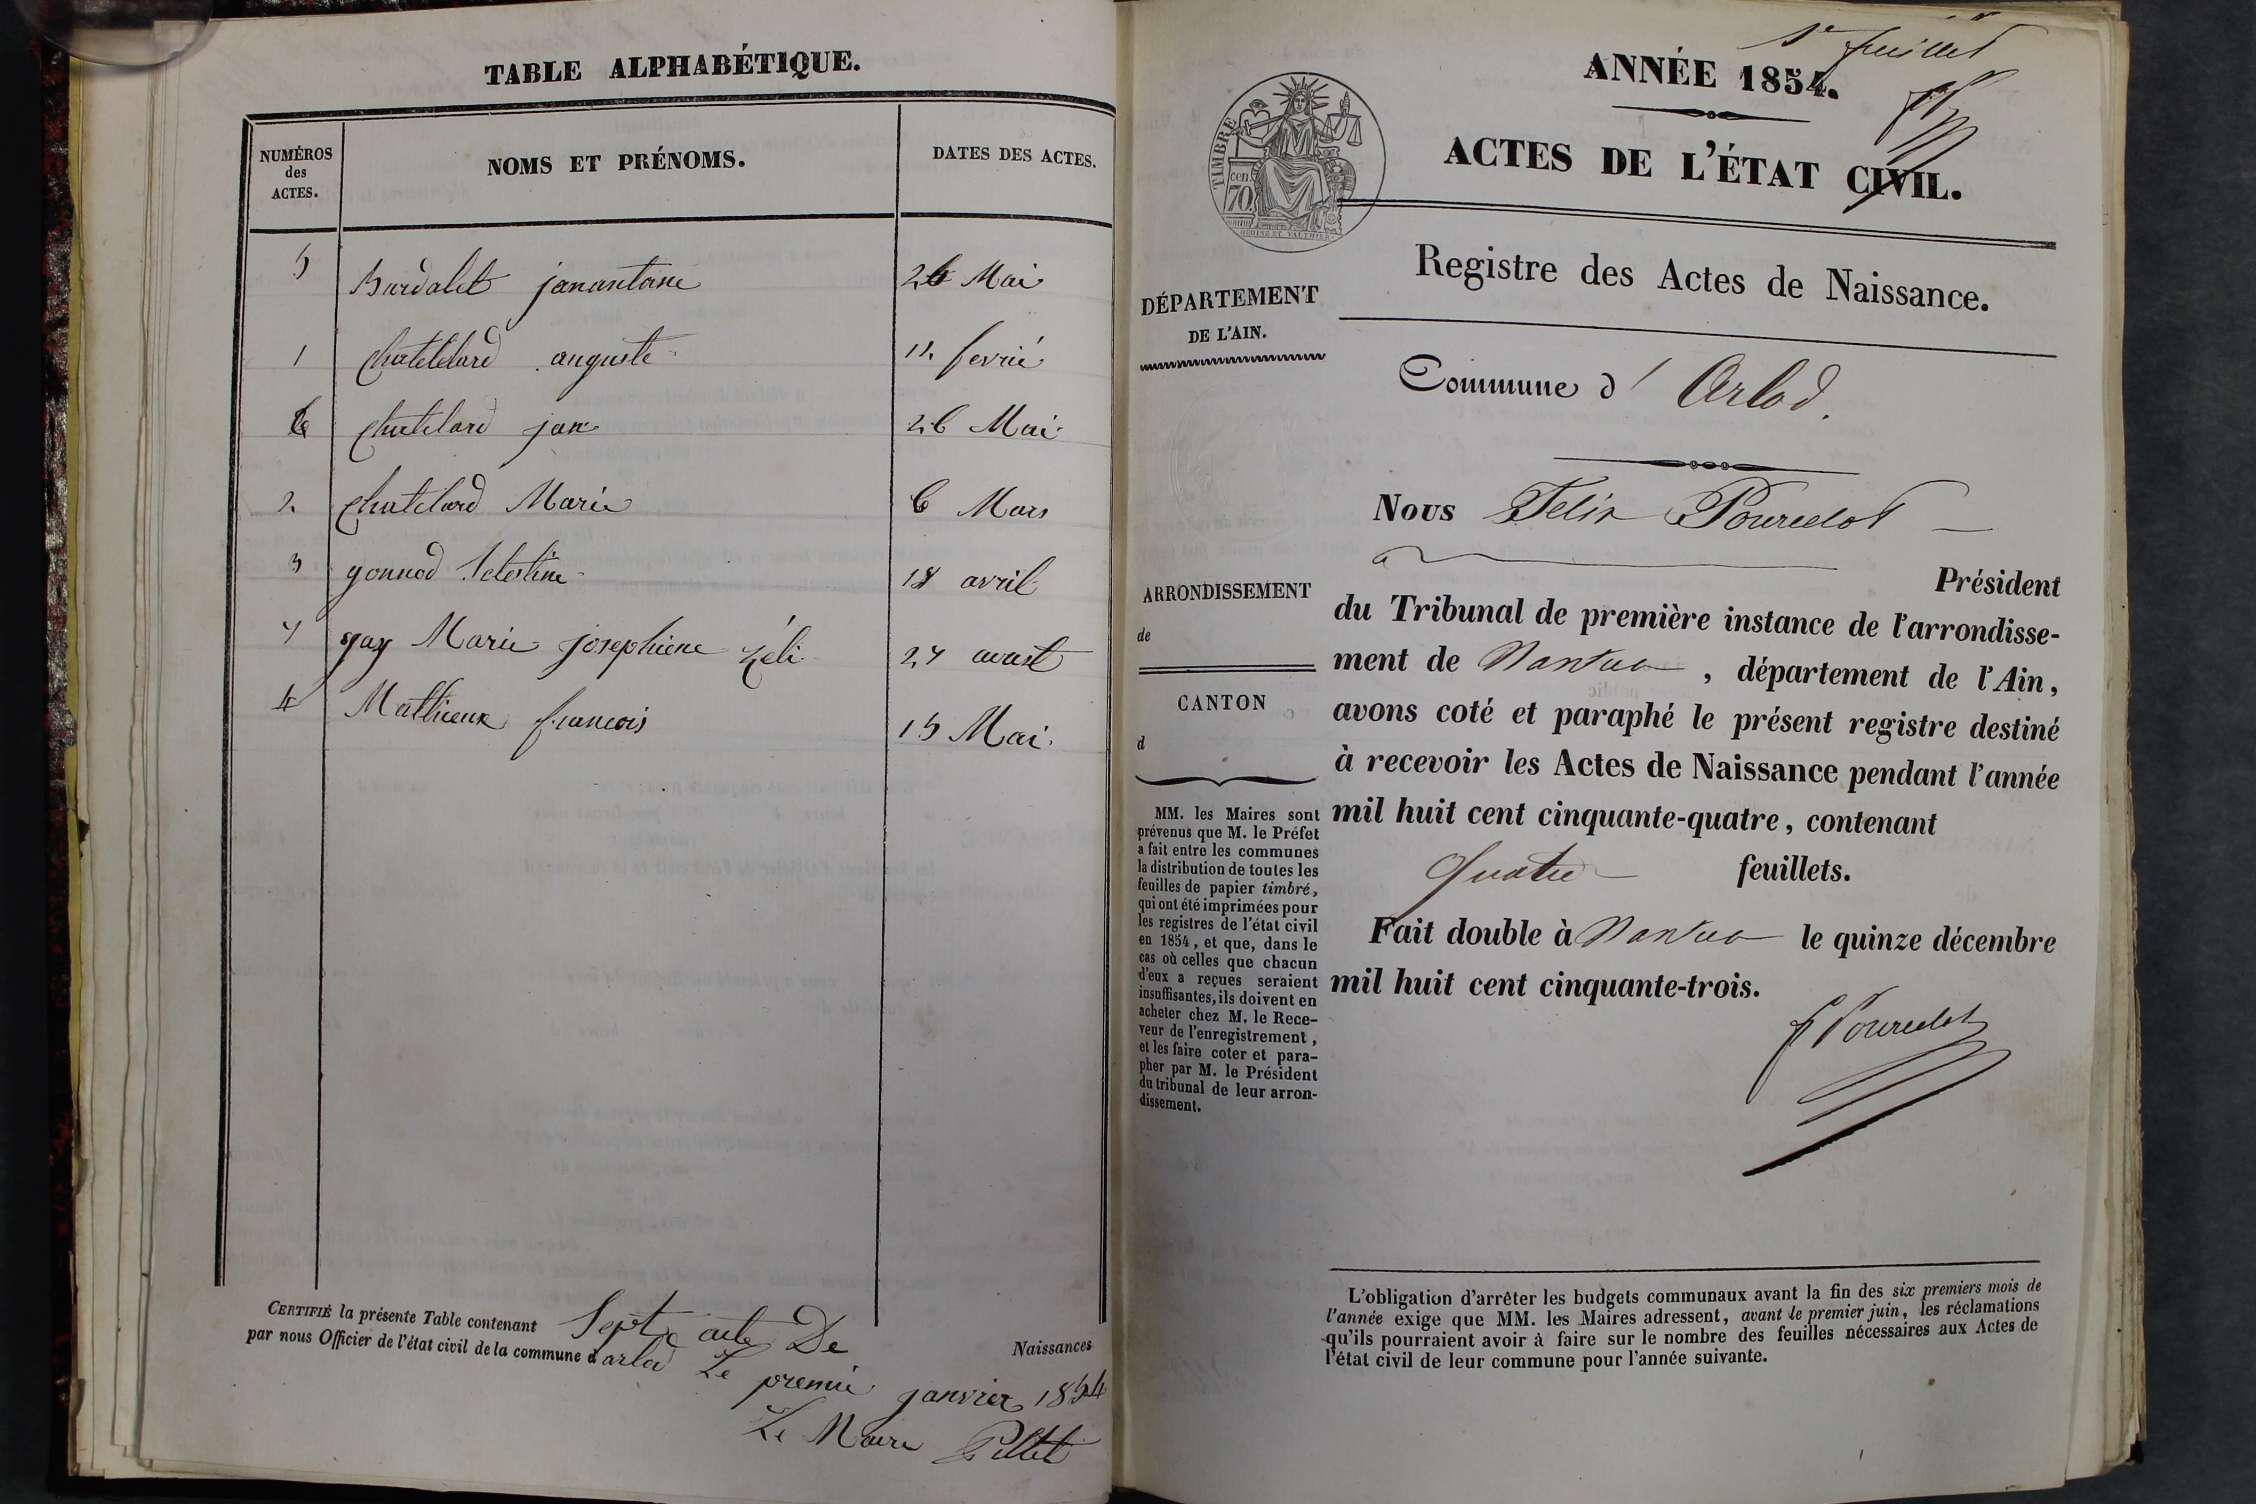 TABLE ALPHABÉTIQUE.
NUMÉROS
des
ACTES.
NOMS ET PRÉNOMS.
DATES DES ACTES.
5 Bardalet janantoine 26 Mai
1 Chatelard auguste 12 fevrié
6 Chatelard jan 26 Mai
2 Chatelard Marie 6 Mars
3 gonnod Selestine 18 avril
7 gay Marie josephiene Zéli 27 aoust
4 Mathieux francois 15 Mai
CERTIFIÉ la présente Table contenant Sept acte De Naissances
par nous Officier de l'état civil de la commune d'arlod Le premie janvier 1854
Le Maire Pillet
1er feuillet
ANNÉE 1854.
ACTES DE L'ÉTAT CIVIL.
TIMBRE
70 cen.
Registre des Actes de Naissance.
DÉPARTEMENT
DE L'AIN.
Commune d' Arlod.
Nous Felix Pourcelot
Président
ARRONDISSEMENT
de
CANTON
d
du Tribunal de première instance de l'arrondisse-
ment de Nantua, département de l'Ain,
avons coté et paraphé le présent registre destiné
à recevoir les Actes de Naissance pendant l'année
mil huit cent cinquante-quatre, contenant
Quatre feuillets.
Fait double à Nantua le quinze décembre
mil huit cent cinquante-trois.
F Pourcelot
MM. les Maires sont
prévenus que M. le Préfet
a fait entre les communes
la distribution de toutes les
feuilles de papier timbré,
qui ont été imprimées pour
les registres de l'état civil
en 1854, et que, dans le
cas où celles que chacun
d'eux a reçues seraient
insuffisantes, ils doivent en
acheter chez M. le Rece-
veur de l'enregistrement,
et les faire coter et para-
pher par M. le Président
du tribunal de leur arron-
dissement.
L'obligation d'arrêter les budgets communaux avant la fin des six premiers mois de
l'année exige que MM. les Maires adressent, avant le premier juin, les réclamations
qu'ils pourraient avoir à faire sur le nombre des feuilles nécessaires aux Actes de
l'état civil de leur commune pour l'année suivante.